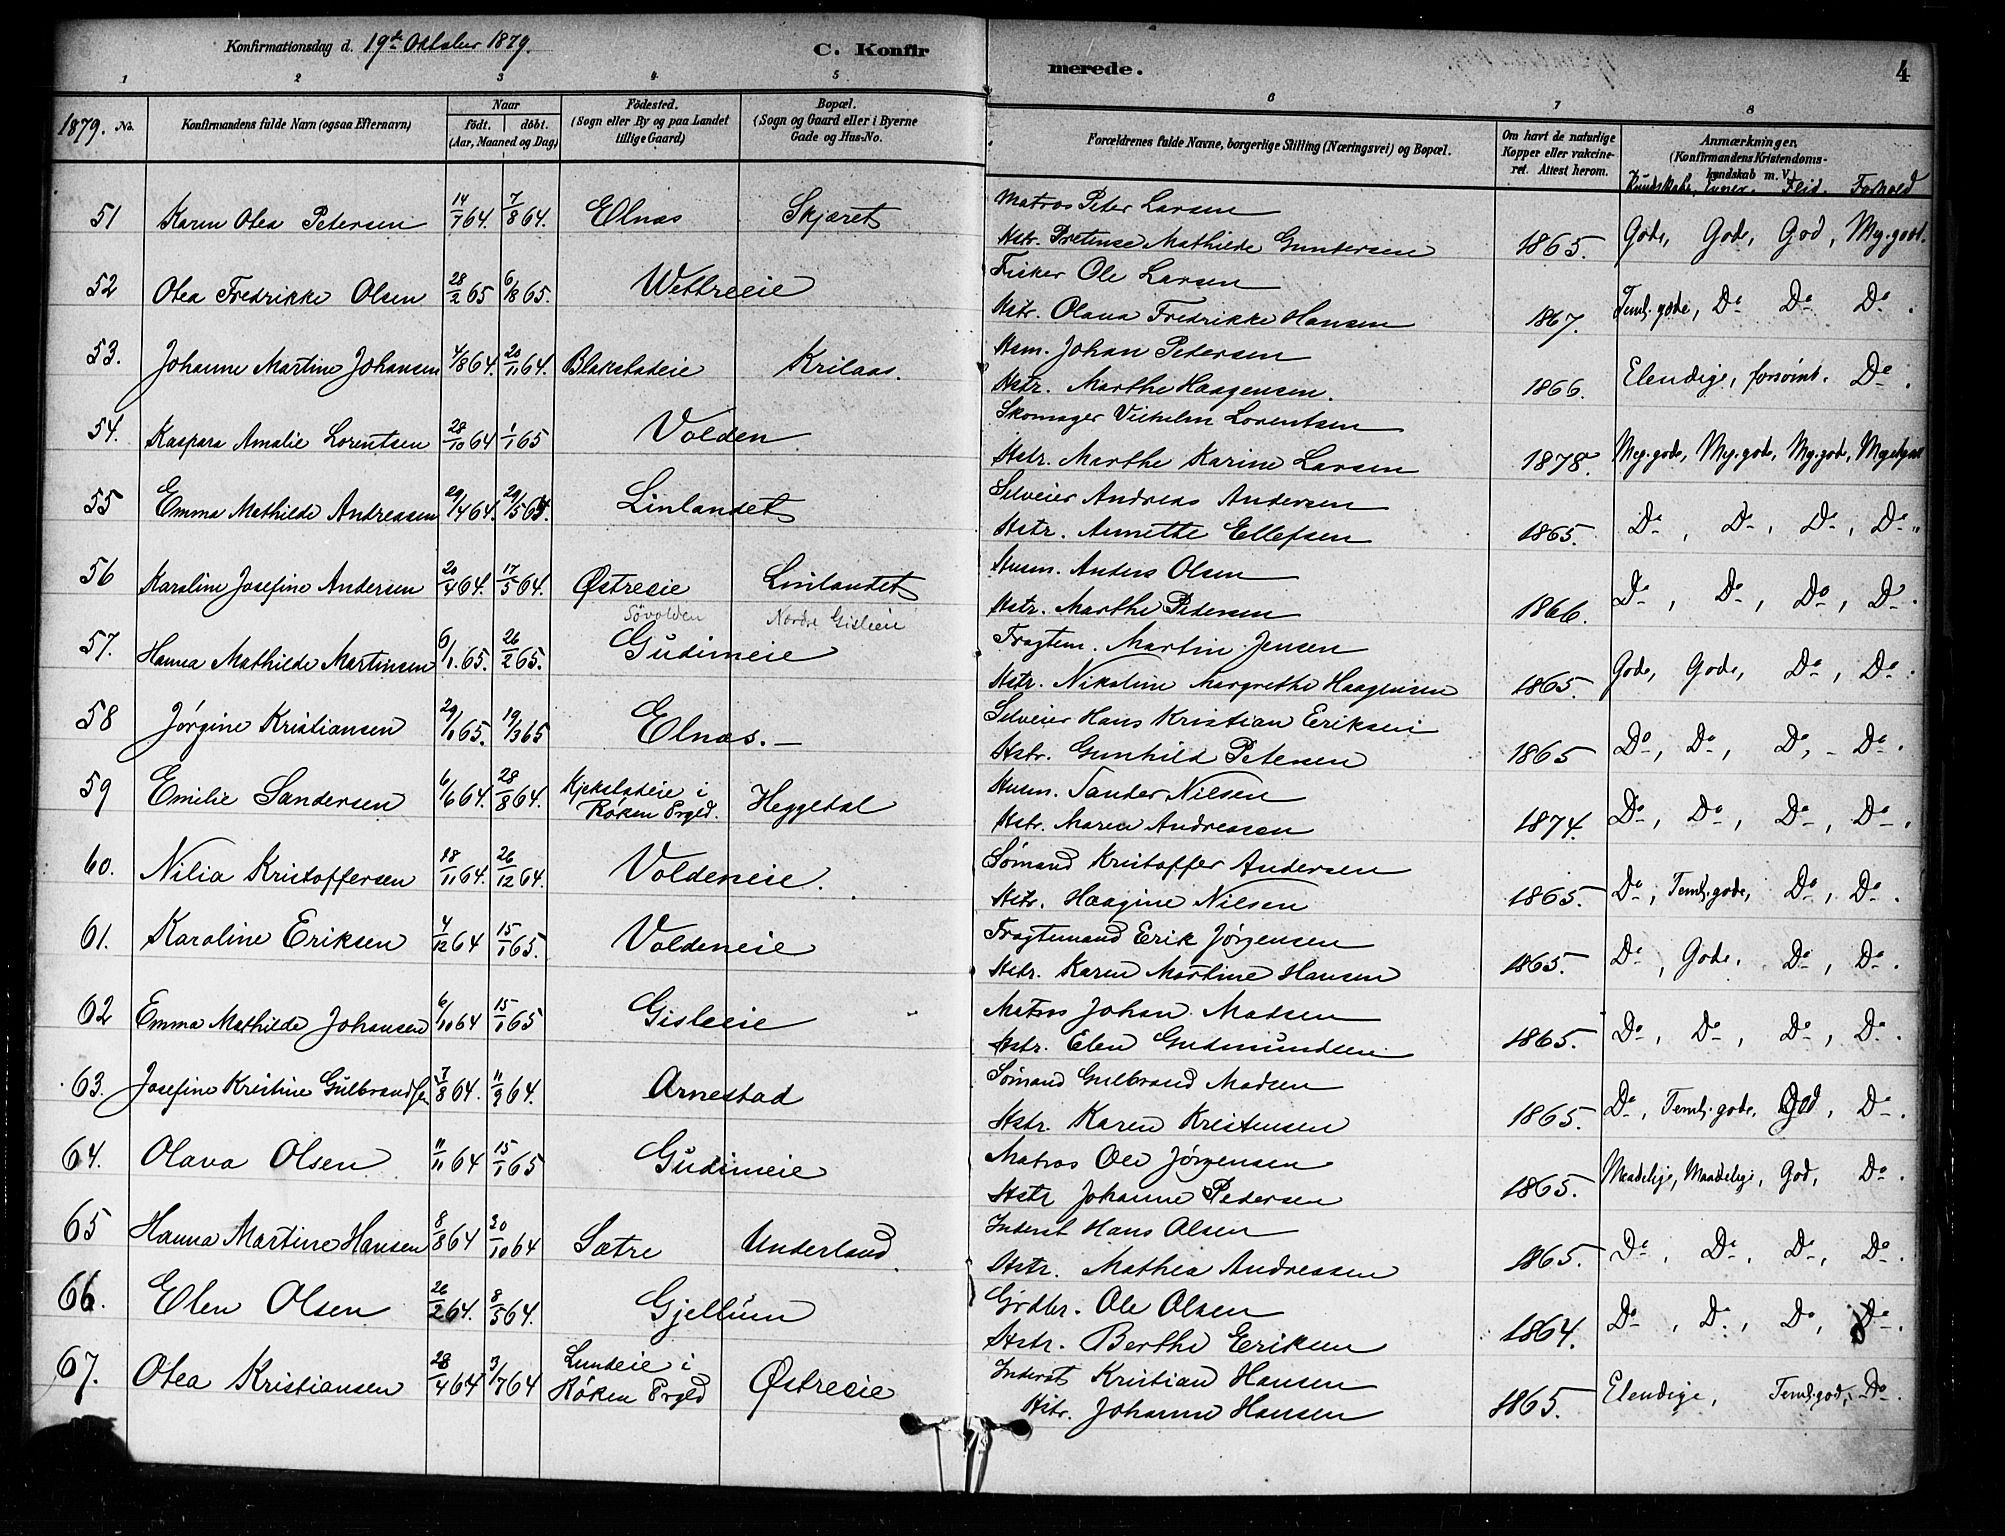 Konfirmationsdag d. 19de Oktober 1879.
C. Konfir
merede.
4
1 2 3 4 5 6 7 8
1879. No.
Konfirmandens fulde Navn (ogsaa Efternavn)
Naar
født. døbt.
(Aar, Maaned og Dag)
Fødested.
(Sogn eller By og paa Landet
tillige Gaard)
Bopæl.
(Sogn og Gaard eller i Byerne
Gade og Hus-No.
Forældrenes fulde Navne, borgerlige Stilling (Næringsvei) og Bopæl.
Om havt de naturlige
Kopper eller vakcine-
ret. Attest herom.
Anmærkninger.
(Konfirmandens Kristendoms-
kundskab m. V.)
Kundskabs, Evner, Flid. Forhold
51 Karen Olea Petersen 14/7 64. 7/8 64. Elnæs Skjæret
Matros Peter Larsen
Hstr. Pretense Mathilde Guntersen 1865. Gode, Gode, God, Mg. godt.
52 Olea Fredrikke Olsen 28/2 65 6/8 65. Wettreeie
Fisker Ole Larsen
Hstr. Olava Fredrikke Hansen 1867. Teml. gode, Do Do Do.
53. Johanne Martine Johansen 4/8 64. 20/11 64. Blakstadeie Krilaas.
Hsm. Johan Petersen
Hstr. Marthe Haagensen. 1866. Elendige, forsömt. Do.
54. Kaspara Amalie Lorentsen 28/10 64 1/1 65 Volden
Skomager Vilhelm Lorentsen
Hstr. Marthe Karine Larsen 1878. Meg. gode, Mg. gode, Mg. god,
55 Emma Mathilde Andreasen 29/4 64. 29/5 64. Linlandet
Selveier Andreas Andersen
Hstr. Annette Ellefsen 1865. Do, Do, Do, Do
56 Karoline Josefine Andersen 20/4 64. 17/5 64. Østreeie Linlandet
Husm. Anders Olsen
Hstr. Marthe Petersen 1866. Do, Do, Do, Do.
Sövolden Nordre Gisleeie
57. Hanna Mathilde Martinsen 6/1 65. 26/2 65. Gudimeie
Fragtem. Martin Jensen
Hstr. Nikoline Margrethe Haagensen 1865. Gode, Gode, Do, Do.
58 Jørgine Kristiansen 29/1 65. 19/3 65 Elnæs. –
Selveier Hans Kristian Eriksen
Hstr. Gunhild Petersen 1865 Do, Do, Do, – Do.
59 Emilie Sandersen 6/6 64. 28/8 64. Kjekstadeie i
Røken Prgld. Heggedal
Husm. Sander Nilsen
Hstr. Maren Andreasen 1874. Do, Do, Do, Do.
60. Nilia Kristoffersen 18/11 64. 26/12 64. Voldeneie.
Sömand Kristoffer Andersen
Hstr. Haagine Nilsen 1865. Do, Teml. gode, Do, Do.
61. Karoline Eriksen 4/12 64 15/1 65. Voldeneie
Fragtemand Erik Jørgensen
Hstr. Karen Martine Hansen 1865. Do, Gode, Do, Do.
62 Emma Mathilde Johansen 6/10 64 15/1 65 Gisleeie
Matros Johan Madsen
Hstr. Elen Gudmundsen 1865. Do, Do, Do, Do.
63. Josefine Kristine Gulbrandsen 7/8 64. 11/9 64. Arnestad
Sömand Gulbrand Madsen
Hstr. Karen Kristensen 1865. Do, Teml. gode, God, Do.
64. Olava Olsen 11/11 64 15/1 65 Gudimeie
Matros Ole Jørgensen
Hstr Johanne Pedersen 1865. Maadelige, Maadelige, God, Do.
65 Hanna Martine Hansen 8/8 64 30/10 64 Sætre Underland
Inderst Hans Olsen
Hstr. Mathea Andreasen 1865. Do, Do, Do, Do.
66. Elen Olsen 26/2 64. 8/5 64. Gjellum
Grdbr. Ole Olsen
Hstr. Berthe Eriksen 1864. Do, Do, Do, Do.
67. Olea Kristiansen 28/4 64 3/7 64 Lundeie i
Røken Prgld Østreeie
Inderst Kristian Hansen
Hstr. Johanne Hansen 1865. Elendige, Teml. god, Do.